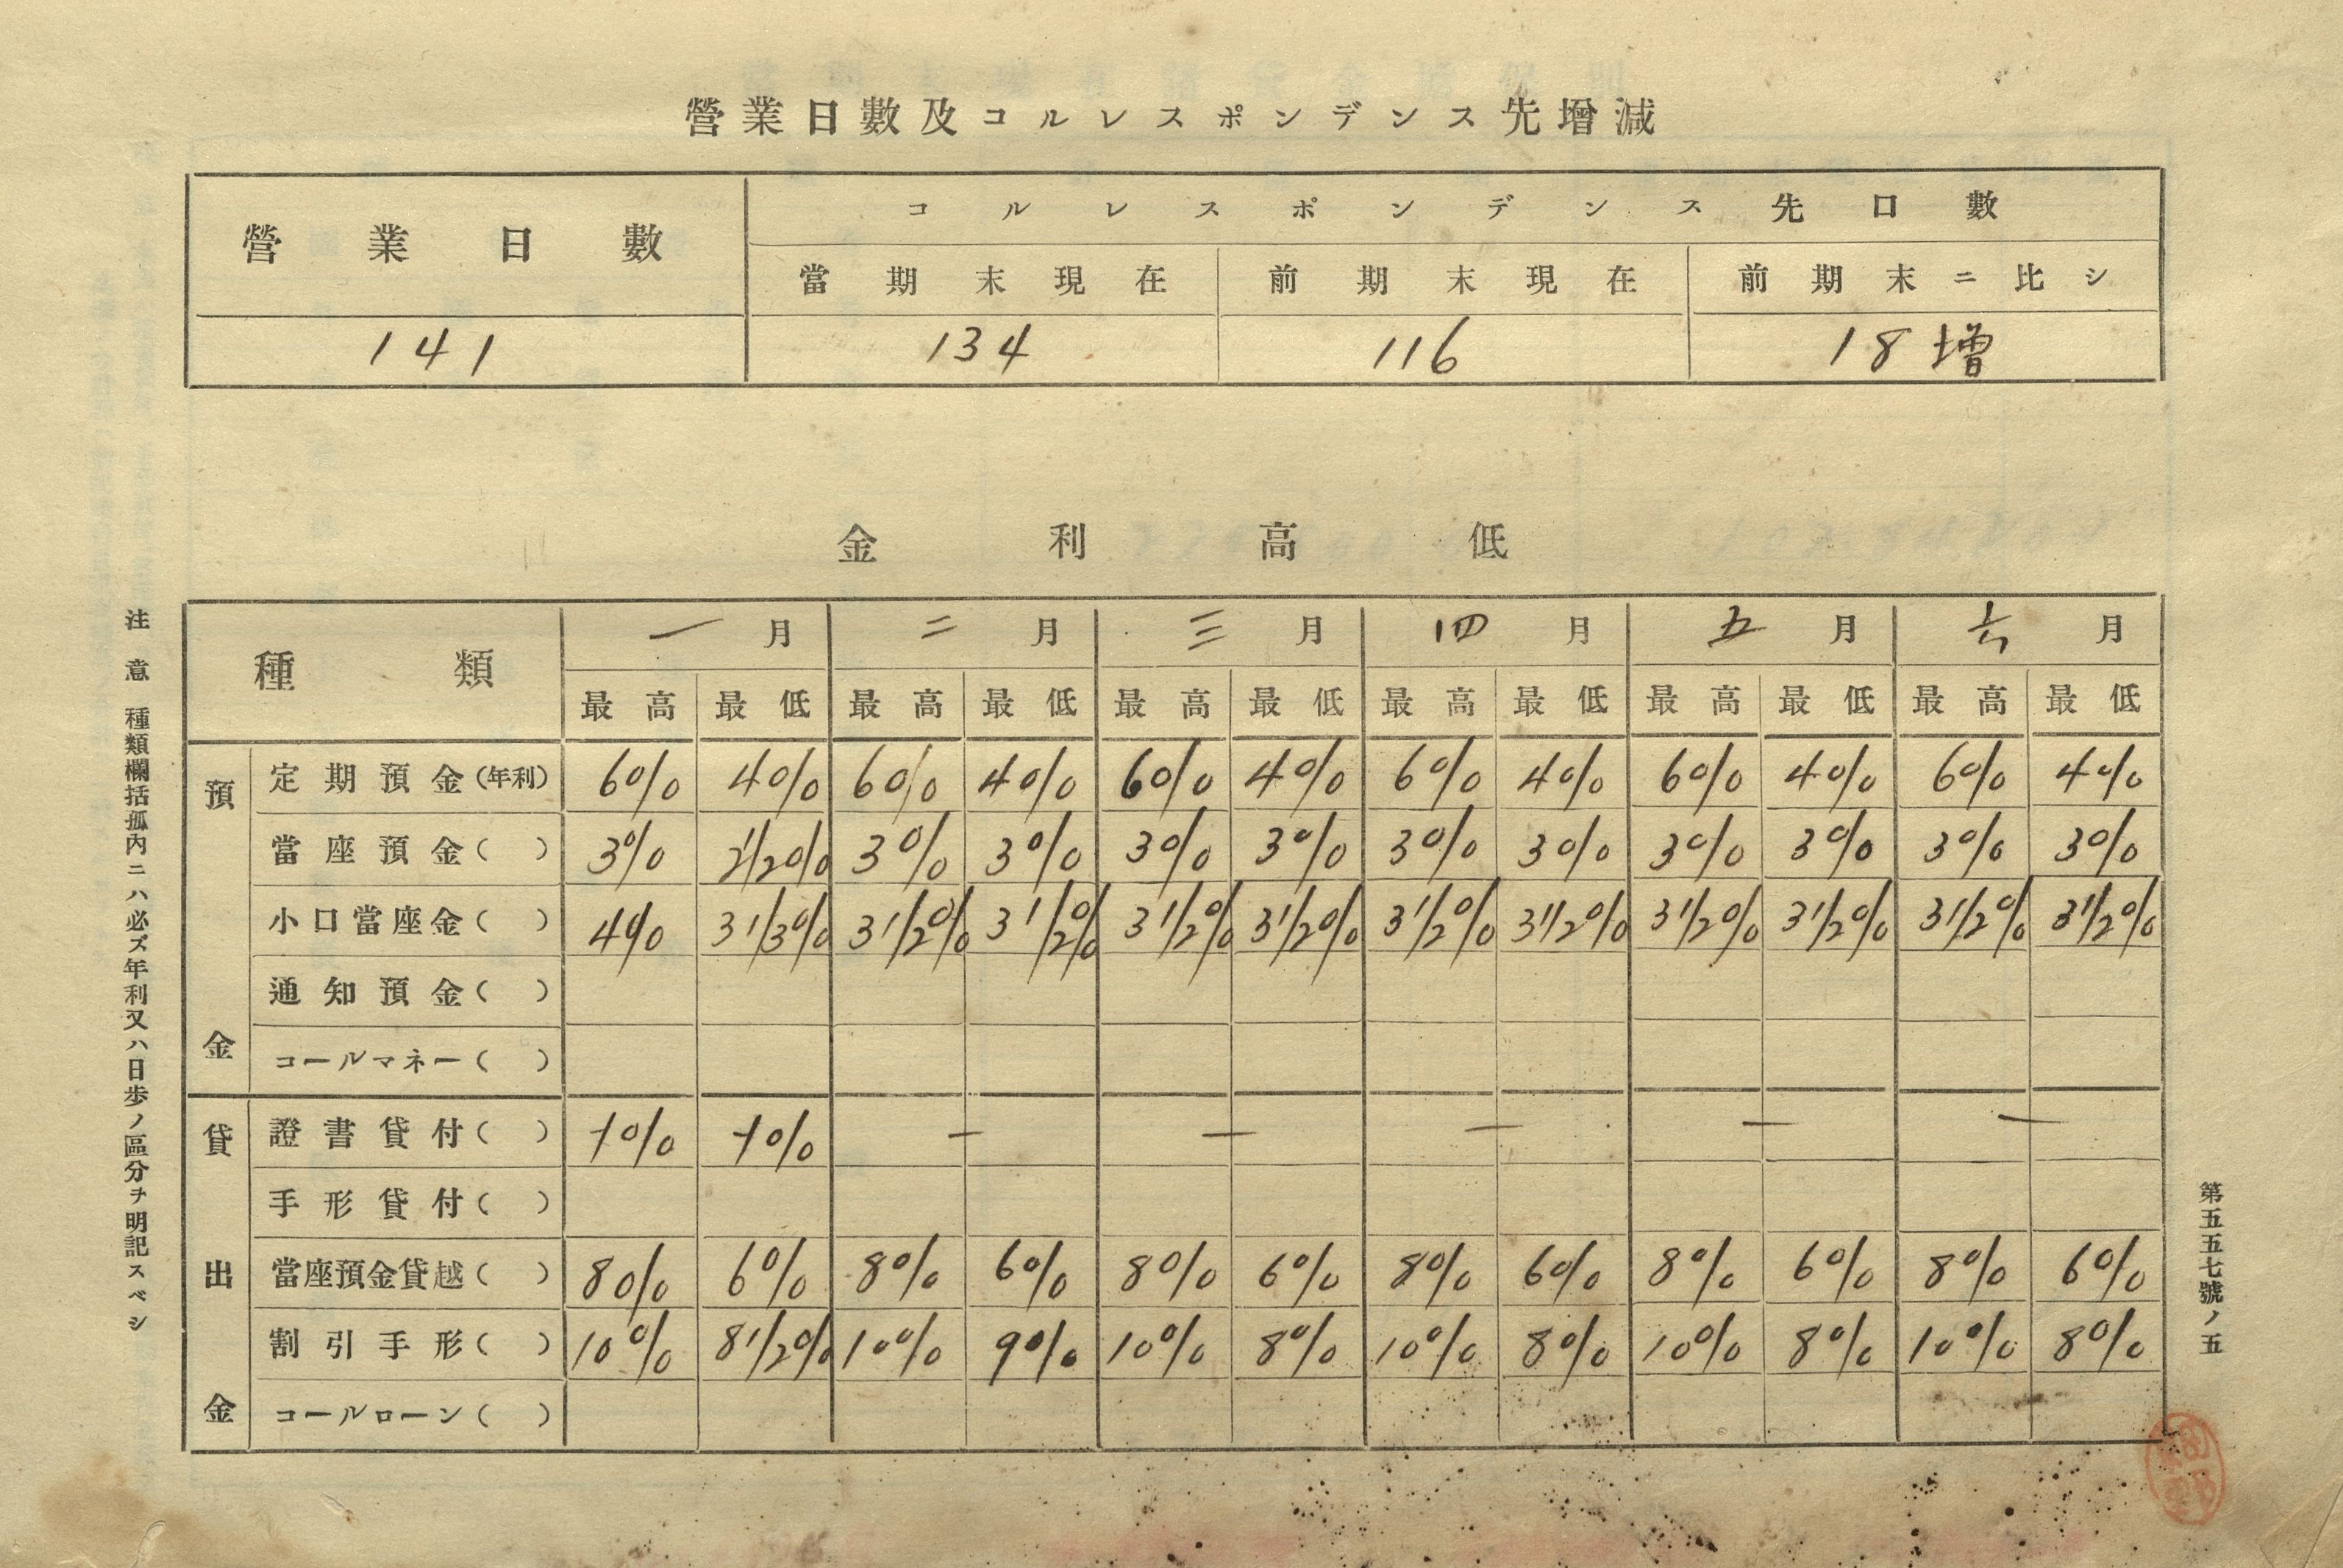 營業日數及コルレスポンデンス先增減
營業日數 コルレスポンデンス先口數
當期末現在 前期末現在 前期末ニ比シ
141 134 116 18增
金利高低
種類 一月 二月 三月 四月 五月 六月
最高 最低 最高 最低 最高 最低 最高 最低 最高 最低 最高 最低
預金
定期預金(年利) 6% 4% 6% 4% 6% 4% 6% 4% 6% 4% 6% 4%
當座預金( ) 3% 2 1/2% 3% 3% 3% 3% 3% 3% 3% 3% 3% 3%
小口當座金( ) 4% 3 1/3% 3 1/2% 3 1/2% 3 1/2% 3 1/2% 3 1/2% 3 1/2% 3 1/2% 3 1/2% 3 1/2% 3 1/2%
通知預金( )
コールマネー( )
貸出金
證書貸付( ) 7% 7% — — — — —
手形貸付( )
當座預金貸越( ) 8% 6% 8% 6% 8% 6% 8% 6% 8% 6% 8% 6%
割引手形( ) 10% 8 1/2% 10% 9% 10% 8% 10% 8% 10% 8% 10% 8%
コールローン( )
注意 種類欄括孤内ニハ必ズ年利又ハ日歩ノ區分ヲ明記スベシ
第五五七號ノ五